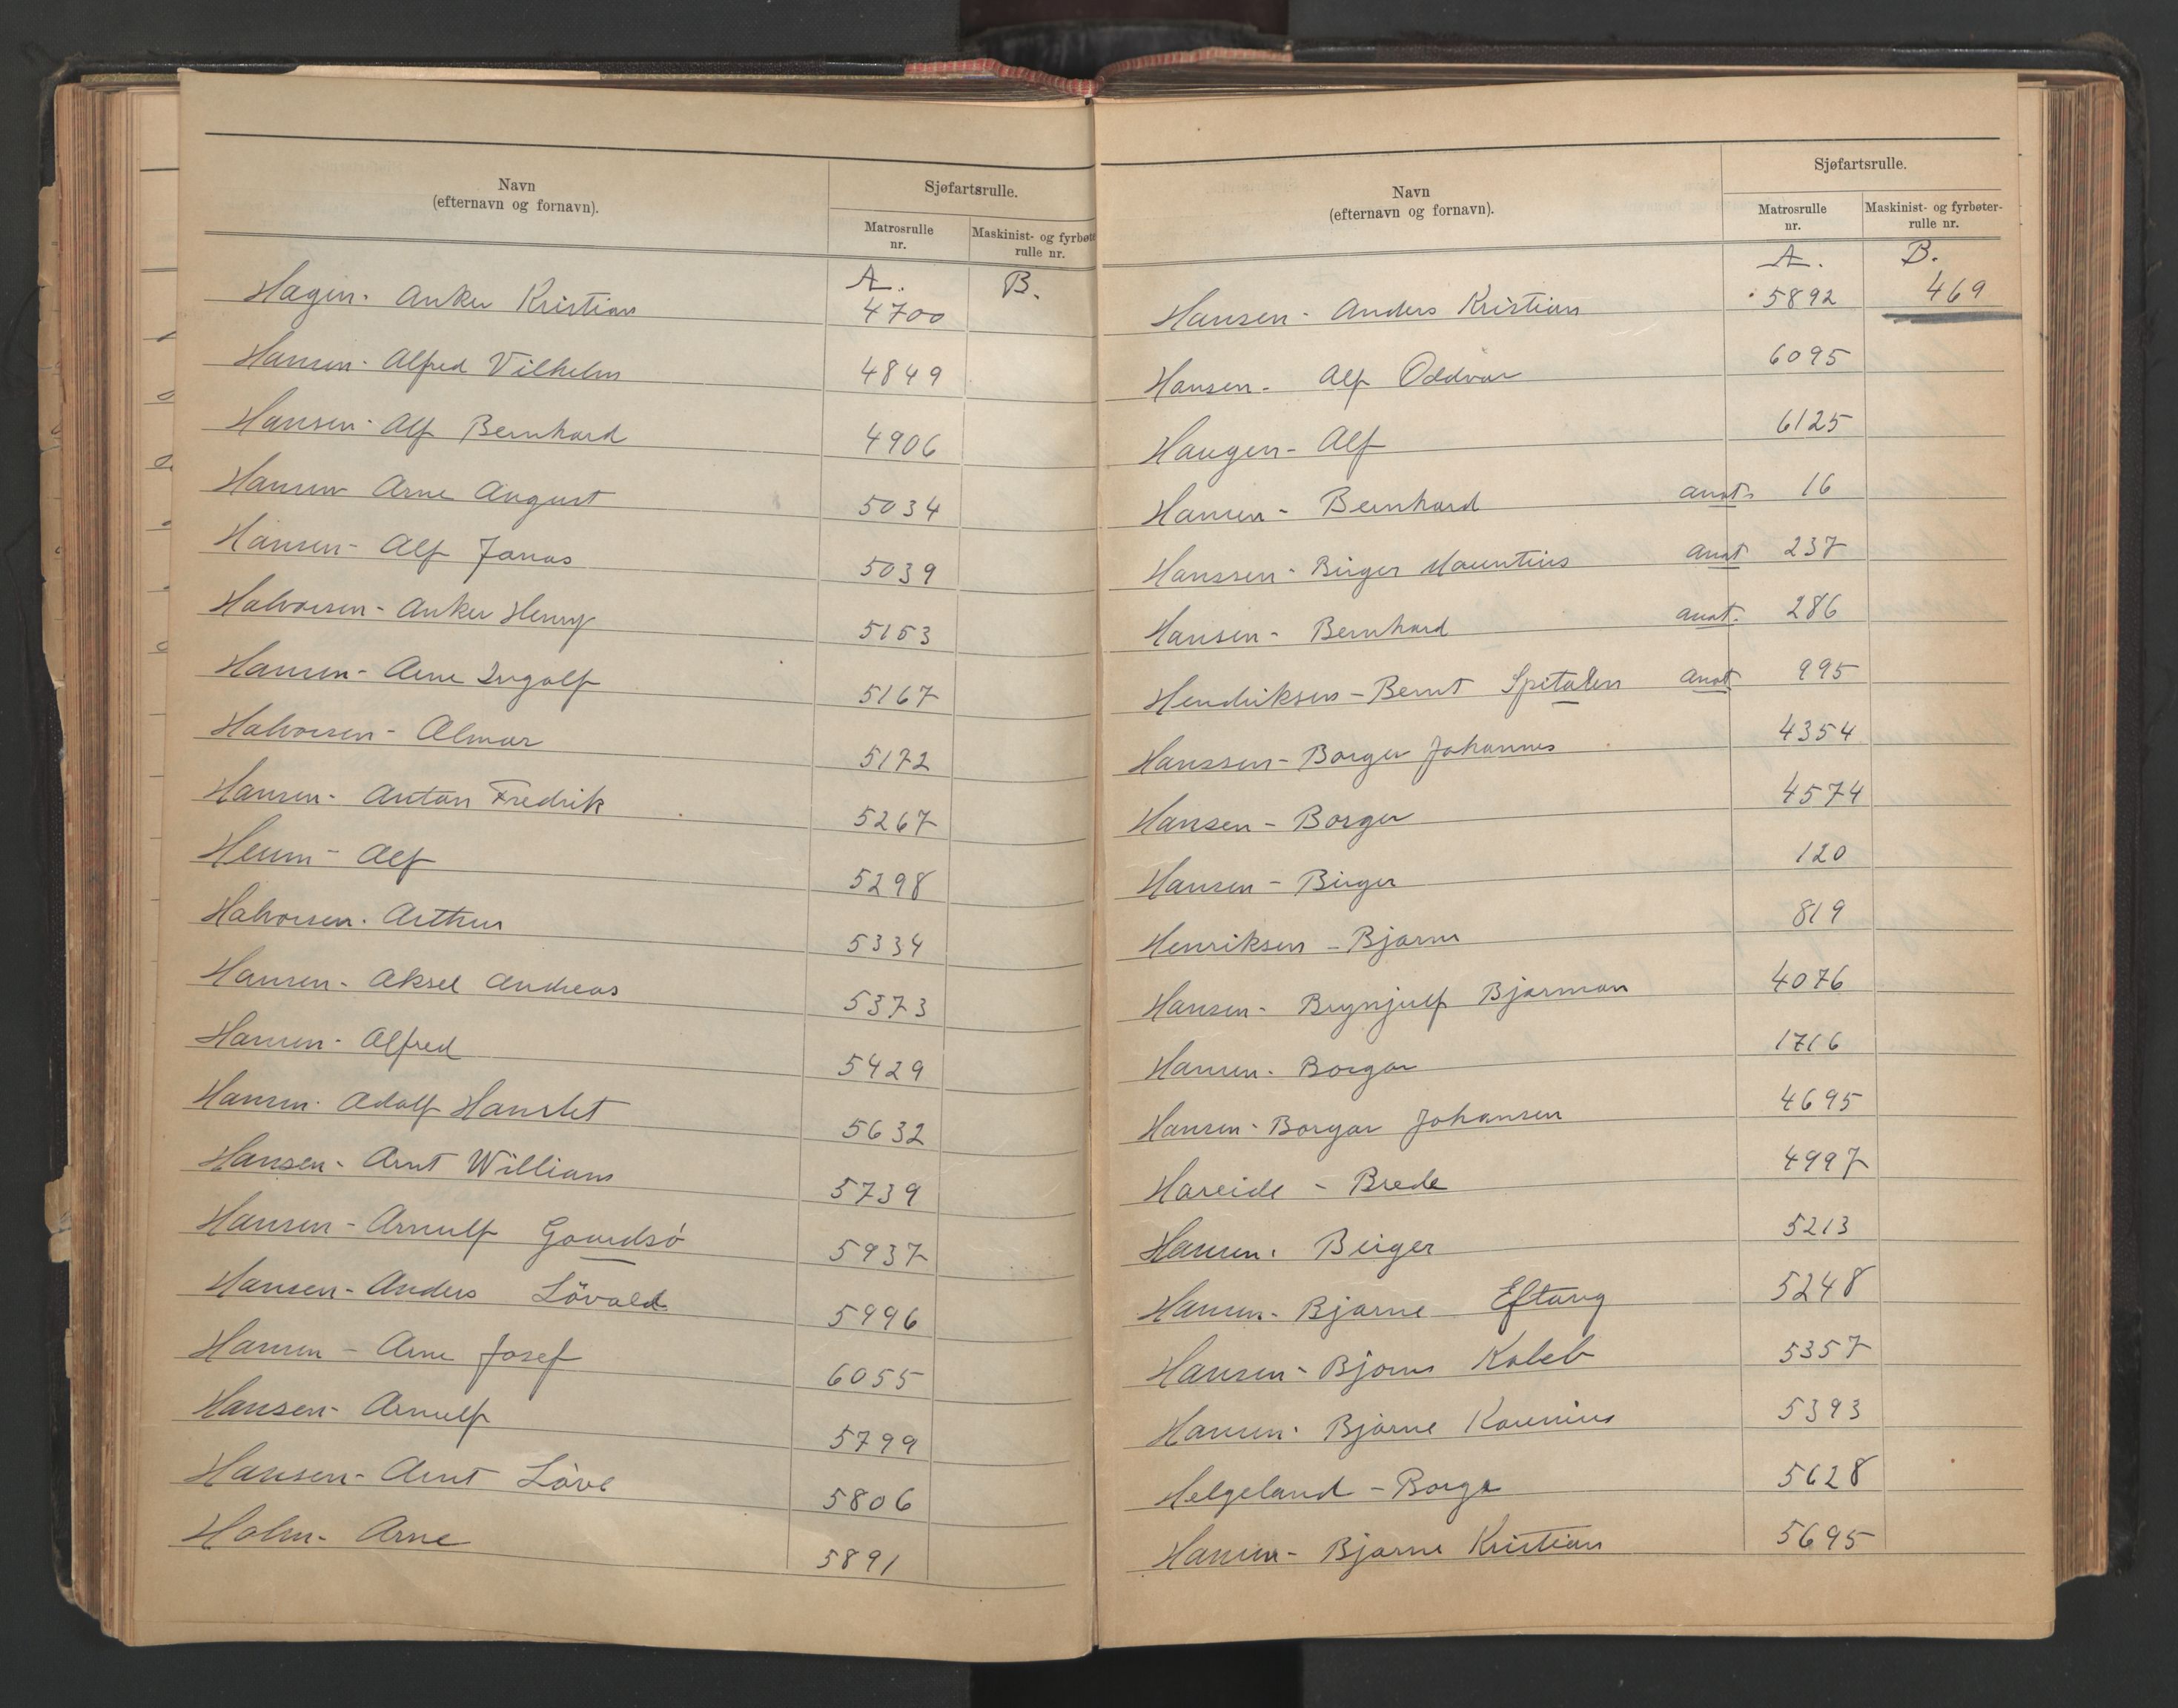 Navn
(efternavn og fornavn).
Sjøfartsrulle.
Matrosrulle
nr.
Maskinist- og fyrbøter-
rulle nr.
A. B.
Hagen - Anker Kristian 4700
Hansen - Alfred Vilhelm 4849
Hansen - Alf Bernhard 4906
Hansen Arne August 5034
Hansen - Alf Jonas 5039
Halvorsen - Anker Henry 5153
Hansen - Arne Ingolf 5167
Halvorsen - Almar 5172
Hansen - Anton Fredrik 5267
Heum - Alf 5298
Halvorsen - Arthur 5334
Hansen - Aksel Andreas 5373
Hansen - Alfred 5429
Hansen - Adolf Hamlet 5632
Hansen - Arnt William 5739
Hansen - Arnulf 5937
Hansen - Anders Lövald 5996
Hansen - Arne Josef 6055
Hansen - Arnulf 5799
Hansen - Arnt Löve 5806
Holm - Arne 5891
Navn
(efternavn og fornavn).
Sjøfartsrulle.
Matrosrulle
nr.
Maskinist- og fyrbøter-
rulle nr.
A. B.
Hansen - Anders Kristian 5892 469
Hansen - Alf Oddvar 6095
Haugen - Alf 6125
Hansen - Bernhard ant. 16
Hanssen - Birger Mauritius ant 237
Hansen - Bernhard ant. 286
Hendriksen - Bernt Spitalen ant 995
Hanssen - Borger Johannes 4354
Hansen - Borger 4574
Hansen - Birger 120
Henriksen - Bjarne 819
Hansen - Brynjulf Bjarman 4076
Hansen - Borgar 1716
Hansen - Borgar Johansen 4695
Hareide - Brede 4997
Hansen - Birger 5213
Hansen - Bjarne Eftang 5248
Hansen - Bjarne Kaleb 5357
Hansen - Bjarne Karenius 5393
Helgeland - Borge 5628
Hansen - Bjarne Kristian 5695